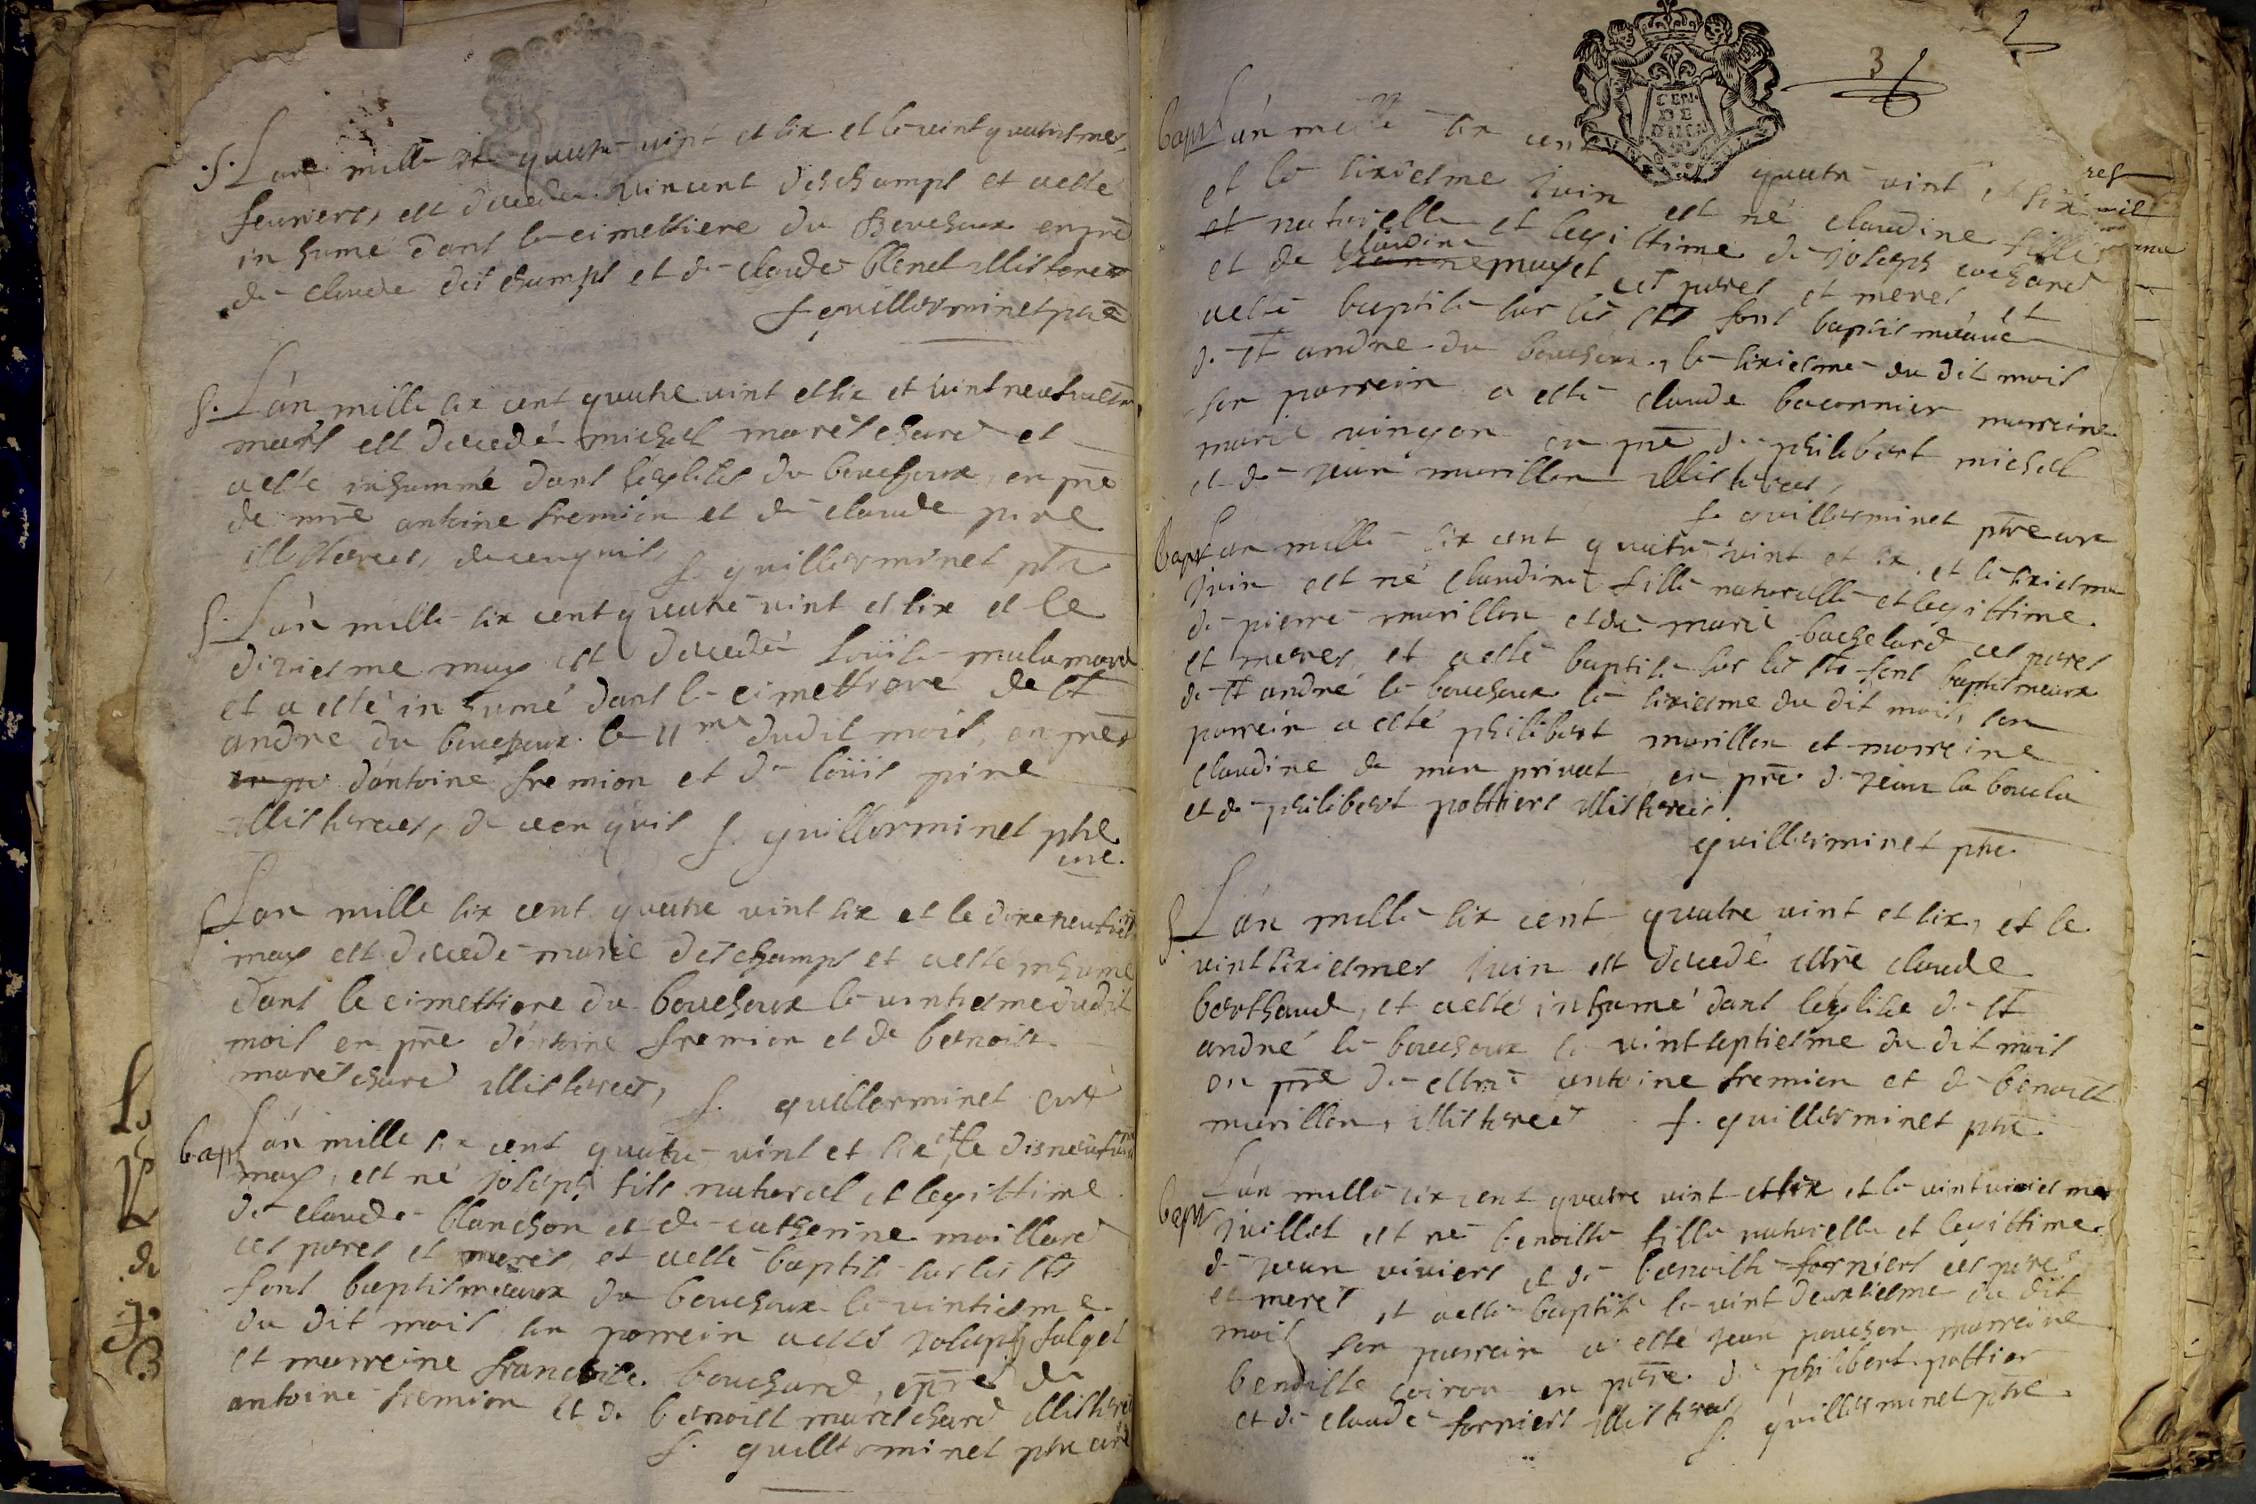 S. Lan mille six quatre vint et six et le vint quatriesmes
feuriers, est decedé vincent deschamps et a esté
in humé dans le cimettiere du Bouchoux en pre
de claude des champs et de claude blenet illisteres
f guillerminet ptre
S. Lán mille six cent quatre vint et six et vint neufuiesme
mars est decedé michel mareschard et
a esté inhummé dans leglise du bouchoux, en pre
de mre antoine fremion et de claude pire
illisteres, de ce enquis f. guillerminet ptre
S. Lán mille six cent quatre vint et six et le
dixiesme may est decedée Louïse malamard
et a esté in humé dans le cimettiere de st
andre du bouchoux le 11me dudit mois, en pres
dántoine fremion et de louïs pire
illisteres, de ce enquis f. guillerminet ptre
cure.
S. Lan mille six cent quatre vint six et le dixe neufuies
may est decedé marie deschamps et a esté inhumé
dans le cimettiere du bouchoux le vintiesme dudit
mois en pre dántoine fremion et de benoist
mareschard illisteres, f. guillerminet curé
bapt Lán mille six cent quatre vint et six et le disneufui
may, est né joseph fils naturel et legittime
de claude blanchon et de catherine moillard
ces peres et meres, et a esté baptisé sur les sts
fons baptismeaux du bouchoux le vintiesme
du dit mois son parrein a esté joseph falget
et marreine françoise bouchard, en pres de
antoine fremion et de benoist mareschard illisteres
f. guillerminet ptre curé
3
GEN. DE DIION
bapt Lán mille six cent quatre vint et six
et le sixiesme Juin est né claudine fille
et naturelle et legittime de joseph cochard
et de claudine puget ces peres et meres et
a esté baptisé sur les sts fons baptismeaux
de st andre du bouchoux, le sixiesme du dit mois
son parrein a esté claude baconnier marreine
marie vingon en pre de philibert michel
et de jean marillon illisteres,
f. guillerminet ptre cure
bapt Lan mille six cent quatre vint et six, et le sixiesme
Juin est né claudine fille naturelle et legittime
de pierre marillon et de marie bachelard ces peres
et meres, et a esté baptisé sur les sts fons baptismeaux
de st andré le bouchoux le sixiesme du dit mois, son
parrein a esté philibert marillon et marreine
claudine de mon privat en pre de jean la boucla
et de philibert pottiers illisteres.
guillerminet ptre
S. Lán mille six cent quatre vint et six, et le
vintsixiesmes Juin est decedé mre claude
berthaud, et a esté inhumé dans leglise de st
andré le bouchoux le vintseptiesme du dit mois
en pre de mre antoine fremion et de benoist
marillon, illisteres f. guillerminet ptre
bapt Lán mille six cent quatre vint et six et le vintuniesmes
Juillet est né benoiste fille naturelle et legittime
de jean viviers et de benoiste forniers ces peres
et meres et a esté baptisé le vint deuxiesme du dit
mois son parrein a esté jean pauchon marreine
benoiste coiron en pre de philibert pottier
et de claude forniers illisteres,
f. guillerminet ptre